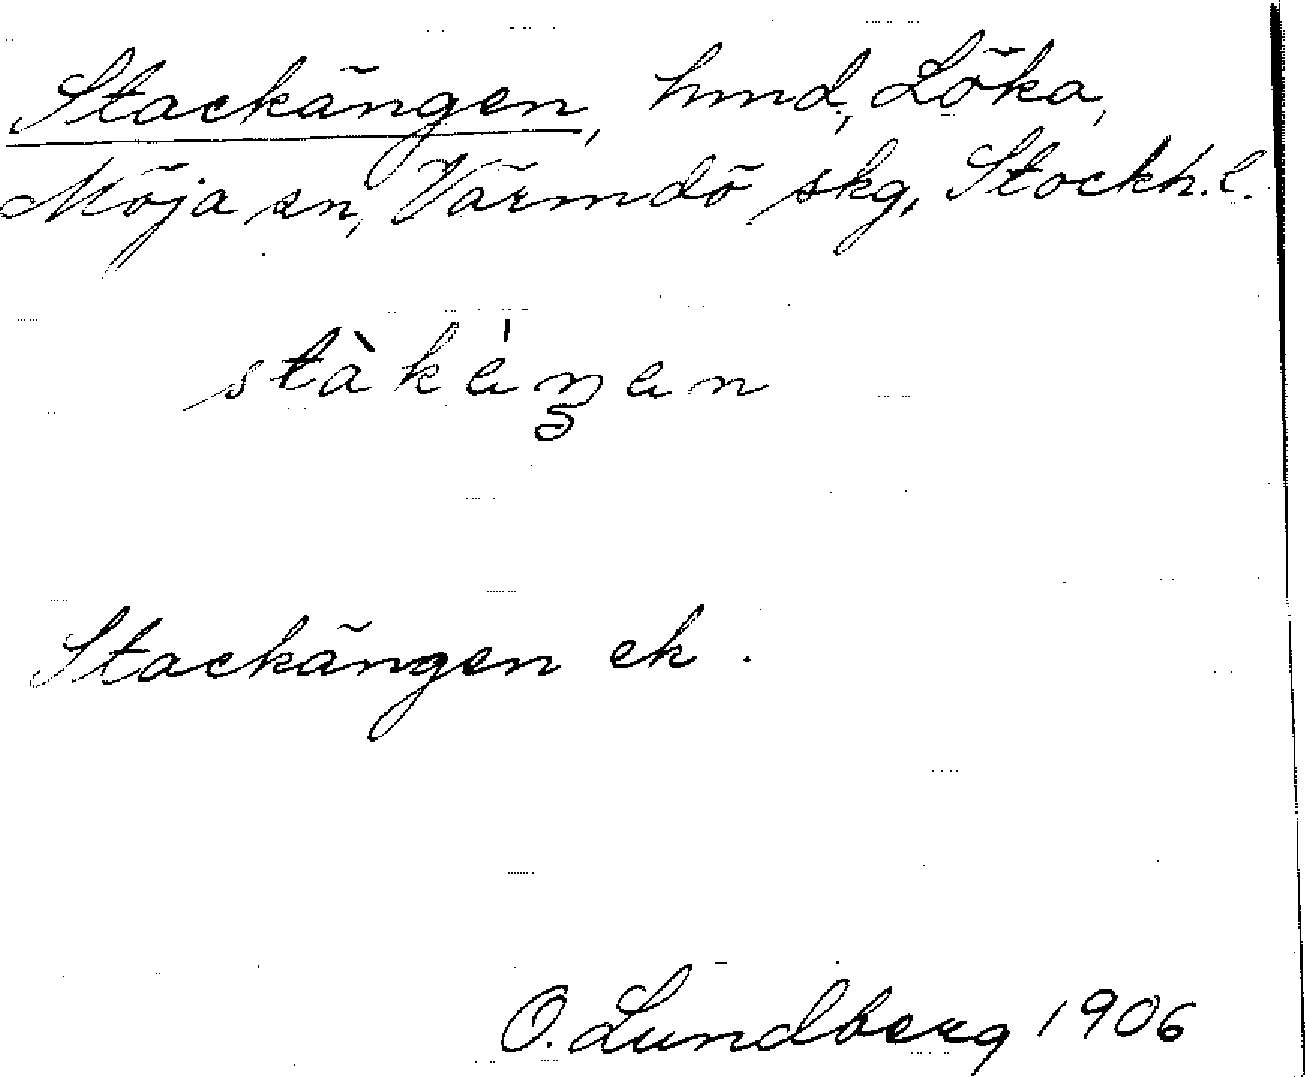 Stackängen, hmd, Löka,
Möja sn, Värmdö skg, Stockh. l.
stàkáŋan
Stackängen ek.
O. Lundberg 1906